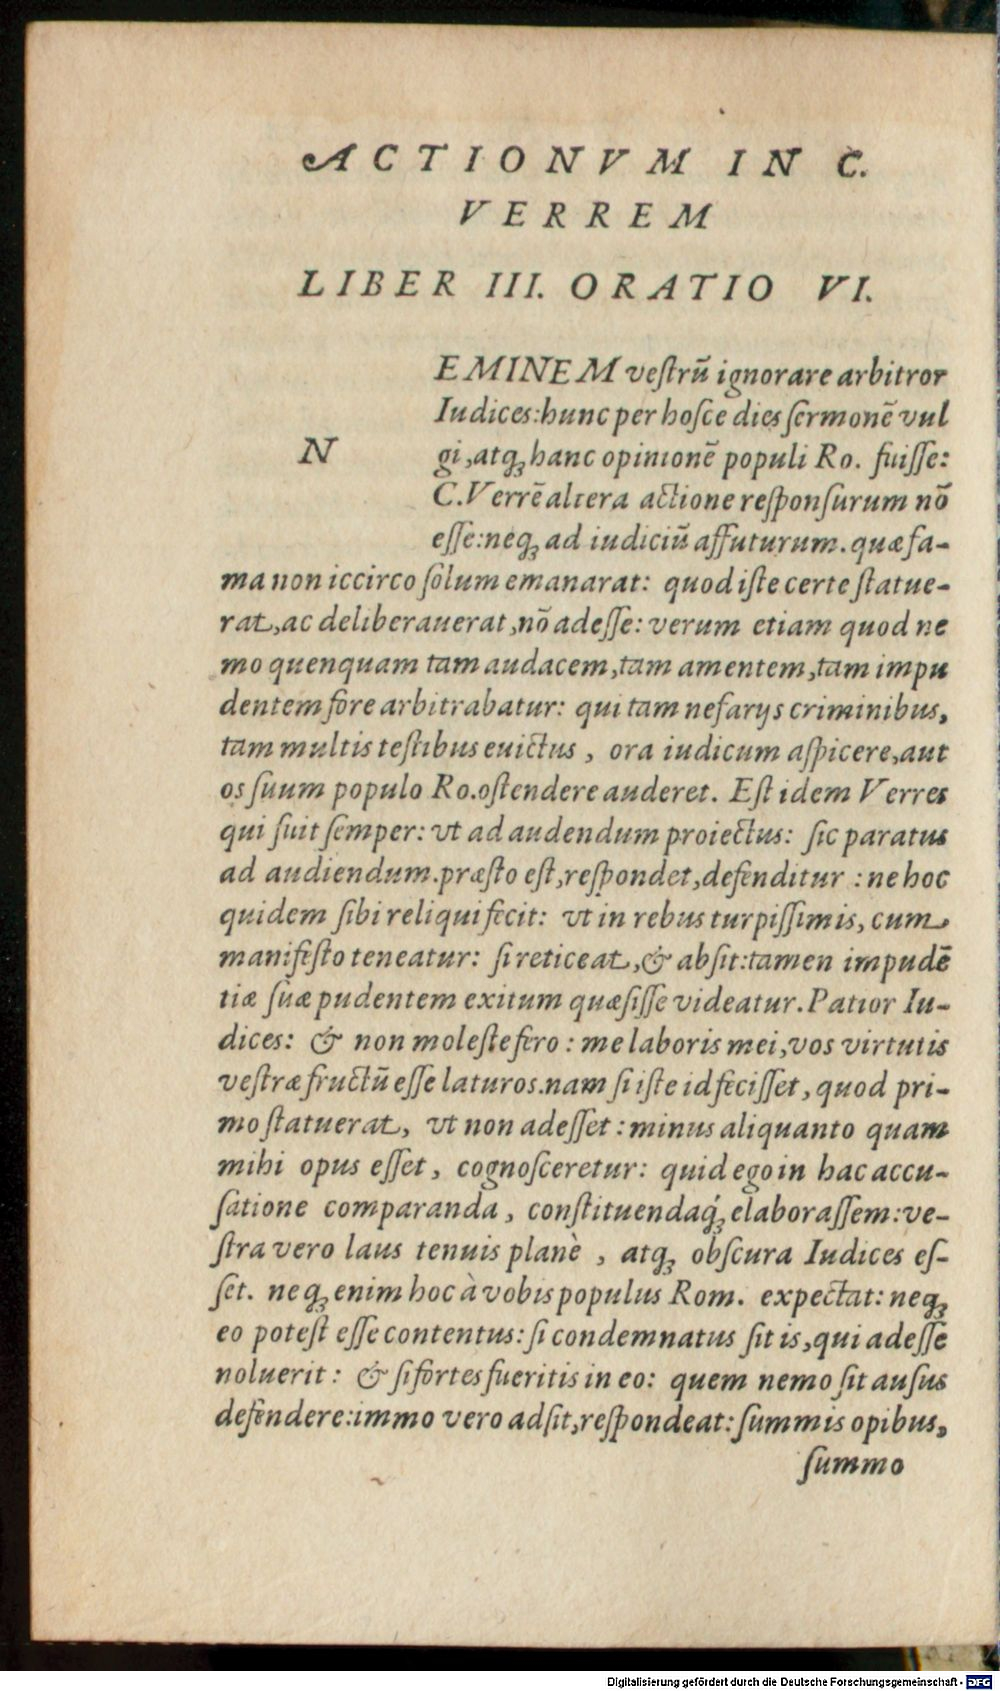 ACTIONVM IN C.
VERREM
LIBER III. ORATIO VI.
N
EMINEM veſtrũ ignorare arbitror
Iudices: hunc per hoſce dies ſermonẽ vul
gi, atqꝫ hanc opinionẽ populi Ro. fuiſſe:
C. Verrẽ altera actione reſponſurum nõ
eſſe: neqꝫ ad iudiciũ affuturum. quæ fa-
ma non iccirco ſolum emanarat: quod iſte certe ſtatue-
rat, ac deliberauerat, nõ adeſſe: verum etiam quod ne
mo quenquam tam audacem, tam amentem, tam impu
dentem fore arbitrabatur: qui tam nefarijs criminibus,
tam multis teſtibus euictus, ora iudicum aſpicere, aut
os ſuum populo Ro. oſtendere auderet. Eſt idem Verres
qui fuit ſemper: vt ad audendum proiectus: ſic paratus
ad audiendum. præſto eſt, reſpondet, defenditur: ne hoc
quidem ſibi reliqui fecit: vt in rebus turpiſſimis, cum
manifeſto teneatur: ſi reticeat, & abſit: tamen impudẽ
tiæ ſuæ pudentem exitum quæſiſſe videatur. Patior Iu-
dices: & non moleſte fero: me laboris mei, vos virtutis
veſtræ fructũ eſſe laturos. nam ſi iſte id feciſſet, quod pri-
mo ſtatuerat, vt non adeſſet: minus aliquanto quam
mihi opus eſſet, cognoſceretur: quid ego in hac accu-
ſatione comparanda, conſtituendaq́ꝫ elaboraſſem: ve-
ſtra vero laus tenuis planè, atqꝫ obſcura Iudices eſ-
ſet. neqꝫ enim hoc à vobis populus Rom. expectat: neqꝫ
eo poteſt eſſe contentus: ſi condemnatus ſit is, qui adeſſe
noluerit: & ſi fortes fueritis in eo: quem nemo ſit auſus
defendere: immo vero adſit, reſpondeat: ſummis opibus,
ſummo
Digitalisierung gefördert durch die Deutsche Forschungsgemeinschaft - DFG